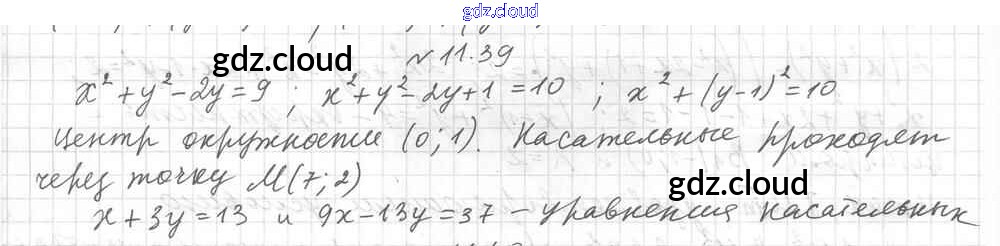 gdz.cloud
gdz.cloud
№ 11.39
x² + y² - 2y = 9 ; x² + y² - 2y + 1 = 10 ; x² + (y-1)² = 10
gdz.cloud
Центр окружности (0; 1). Касательные проходят
через точку M(7; 2)
gdz.cloud
x + 3y = 13 и 9x - 13y = 37 - уравнения касательных
gdz.cloud